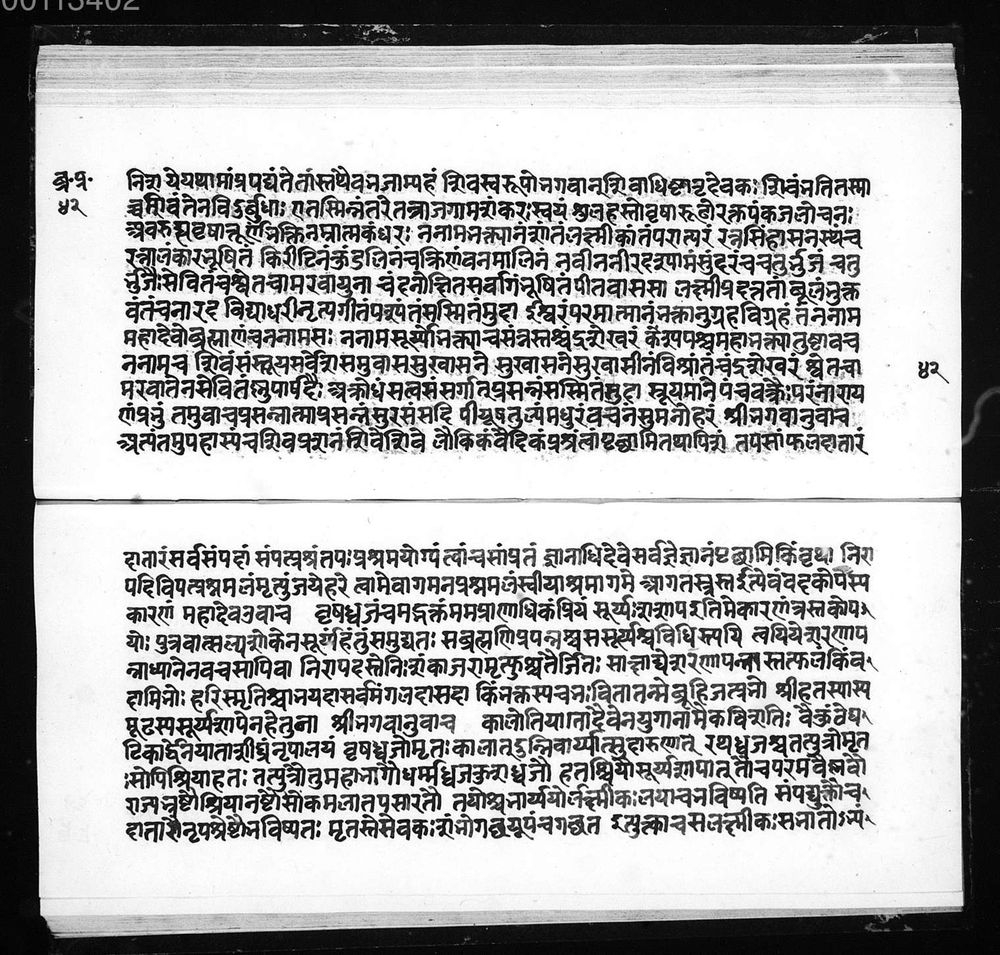 00113402
ब्र॰प्र॰
४२
निशं ये यथा मां प्रपद्यंते तांस्तथैव भजाम्यहं शिवस्वरूपो भगवान् शिवाधिष्ठातृदेवकः शिवं भवति तस्मा
च्च शिवं तेन विदुर्बुधाः एतस्मिन्नंतरे तत्राजगाम शंकरः स्वयं शूलहस्तो वृषारूढो रक्तपंकजलोचनः
अवरुह्य वृषात्तूर्णं भक्तिनम्रात्मकंधरः ननाम भक्त्या तं शांतं लक्ष्मीकांतं परात्परं रत्नसिंहासनस्थं च
रत्नालंकारभूषितं किरीटिनं कुंडलिनं चक्रिणं वनमालिनं नवीननीरदश्यामं सुंदरं च चतुर्भुजं चतु
र्भुजैः सेवितं च श्वेतचामरवायुना चंदनोक्षितसर्वांगं भूषितं पीतवाससा लक्ष्मीप्रदत्ततांबूलं भुक्त
वंतं च नारद विद्याधरीनृत्यगीतं पश्यंतं सस्मितं मुदा ईश्वरं परमात्मानं भक्तानुग्रहविग्रहं तं ननाम
महादेवो ब्रह्माणं च ननाम सः ननाम सूर्यो भक्त्या च संत्रस्तश्चंद्रशेखरं कश्यपश्च महाभक्त्या तुष्टाव च
ननाम च शिवं संस्तूय सर्वेशं समुवास सुखासने सुखासने सुखासीनं विश्रांतं चंद्रशेखरं श्वेतचा
४२
मरवातेन सेवितं विष्णुपार्षदैः अक्रोधं सत्वसंसर्गात्प्रसन्नं सस्मितं मुदा स्तूयमानं पंचवक्त्रैः परं नाराय
णं प्रभुं तमुवाच प्रसन्नात्मा प्रसन्नं सुरसंसदि पीयूषतुल्यं मधुरं वचनं सुमनोहरं श्रीभगवानुवाच
अत्यंतमुपहास्यं च शिवप्रश्नं शिवे शिवं लौकिकं वैदिकं प्रश्नं त्वां पृच्छामि तथापि शं तपसां फलदातारं
दातारं सर्वसंपदां संपत्प्रश्नं तपःप्रश्नमयोग्यं त्वां च सांप्रतं ज्ञानाधिदेवे सर्वज्ञे ज्ञानं पृच्छामि किं वृथा निरा
पदि विपत्प्रश्नमलं मृत्युंजये हरे त्वामेवागमनप्रश्नमलं स्वीयाश्रमागमे आगतस्त्रस्त इत्येवं वद कोपस्य
कारणं महादेव उवाच वृषध्वजं च मद्भक्तं मम प्राणाधिकं प्रियं सूर्यः शशाप इति मे कारणं त्रस्तकोप-
योः पुत्रवात्सल्यशोकेन सूर्यं हंतुं समुद्यतः स ब्रह्माणं प्रपन्नश्च ससूर्यश्च विधिस्त्वयि त्वयि ये शरणाप
न्ना ध्यानेन वचसापि वा निरापदस्ते निःशंका जरामृत्युश्च तैर्जितः साक्षाद्ये शरणापन्नास्तत्फलं किं व-
दामि भोः हरिस्मृतिश्चाभयदा सर्वमंगलदा सदा किं मे भक्तस्य भविता तन्मे ब्रूहि जगत्प्रभो श्रीहतस्यास्य
मूढस्य सूर्यशापेन हेतुना श्रीभगवानुवाच कालोतियातो दैवेन युगानामेकविंशतिः वैकुंठे घ-
टिकार्द्धेन याता शीघ्रं नृपालयं वृषध्वजो मृतः कालात् दुर्निवार्य्यात्सुदारुणात् रथध्वजश्च तत्पुत्रो मृत
सोपि श्रिया हतः तत्पुत्रौ तु महाभागौ धर्म्मध्वजकुशध्वजौ हतश्रियौ सूर्यशापात् तौ च परमवैष्णवौ
राज्यभ्रष्टौ श्रिया भ्रष्टौ सौ कमलातपसा रतौ तयोश्च भार्य्ययोर्लक्ष्मीः कलया च भविष्यति संपद्युक्तौ च
दा तौ नृपश्रेष्ठौ भविष्यतः मृतस्ते सेवकः शंभो गच्छ यूयं च गच्छत इत्युक्त्वा च सलक्ष्मीकः सभातोऽभ्यं